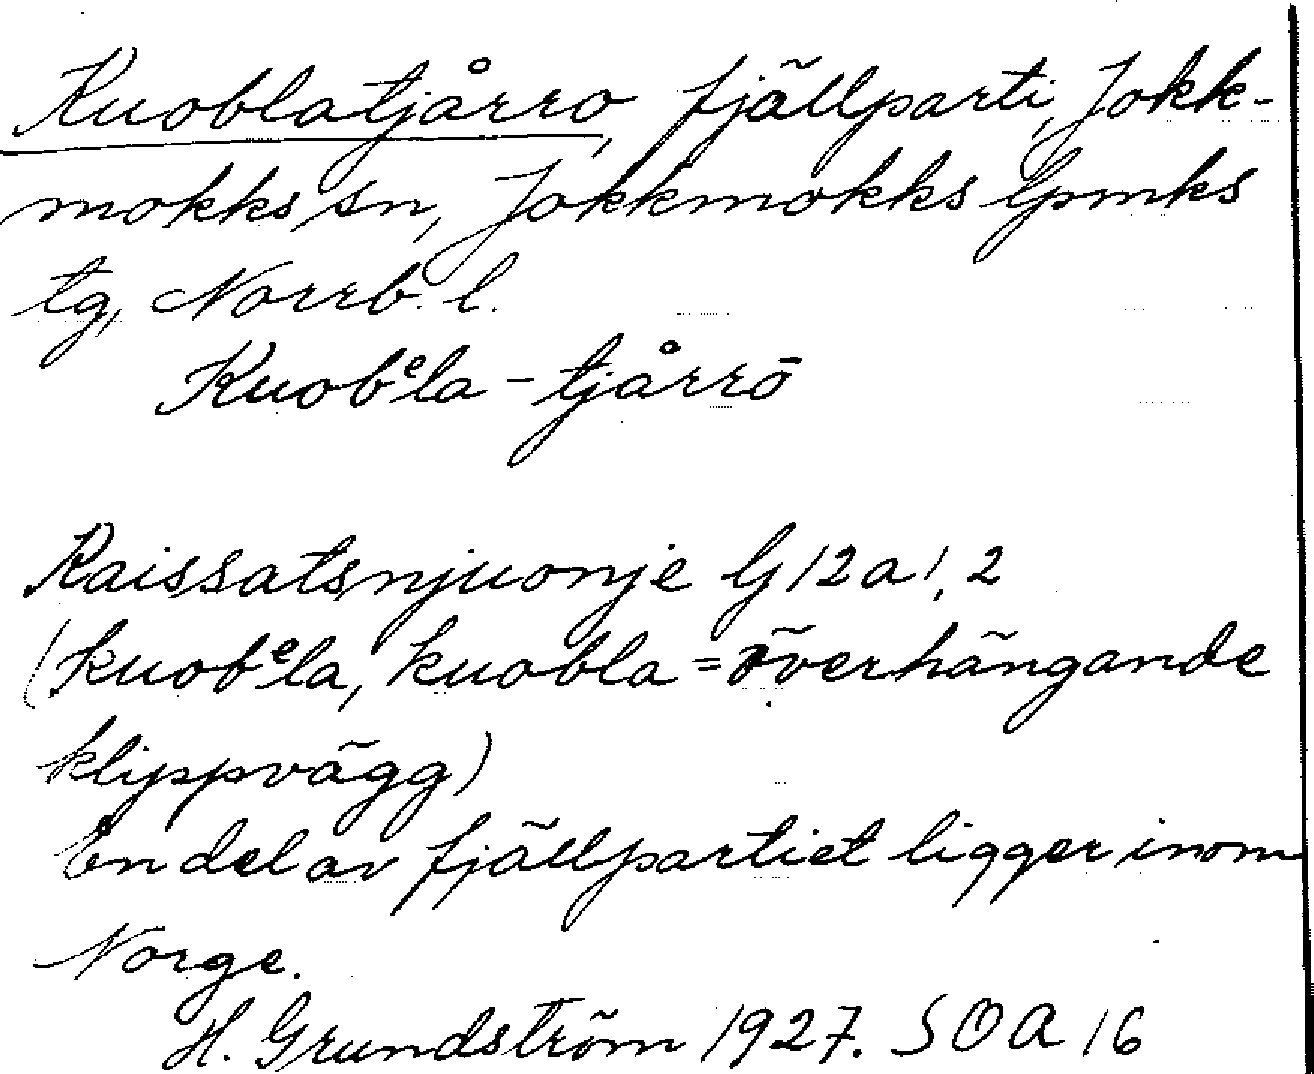 Kuoblatjårro, fjällparti, Jokk-
mokks sn, Jokkmokks lpmks
tg, Norrb. l.
Kuobᵉla-tjårrō
Raissatsnjuonje G 12 a 1, 2
(kuobᵉla, kuobla = överhängande
klippvägg)
En del av fjällpartiet ligger inom
Norge.
H. Grundström 1927. SOA 16